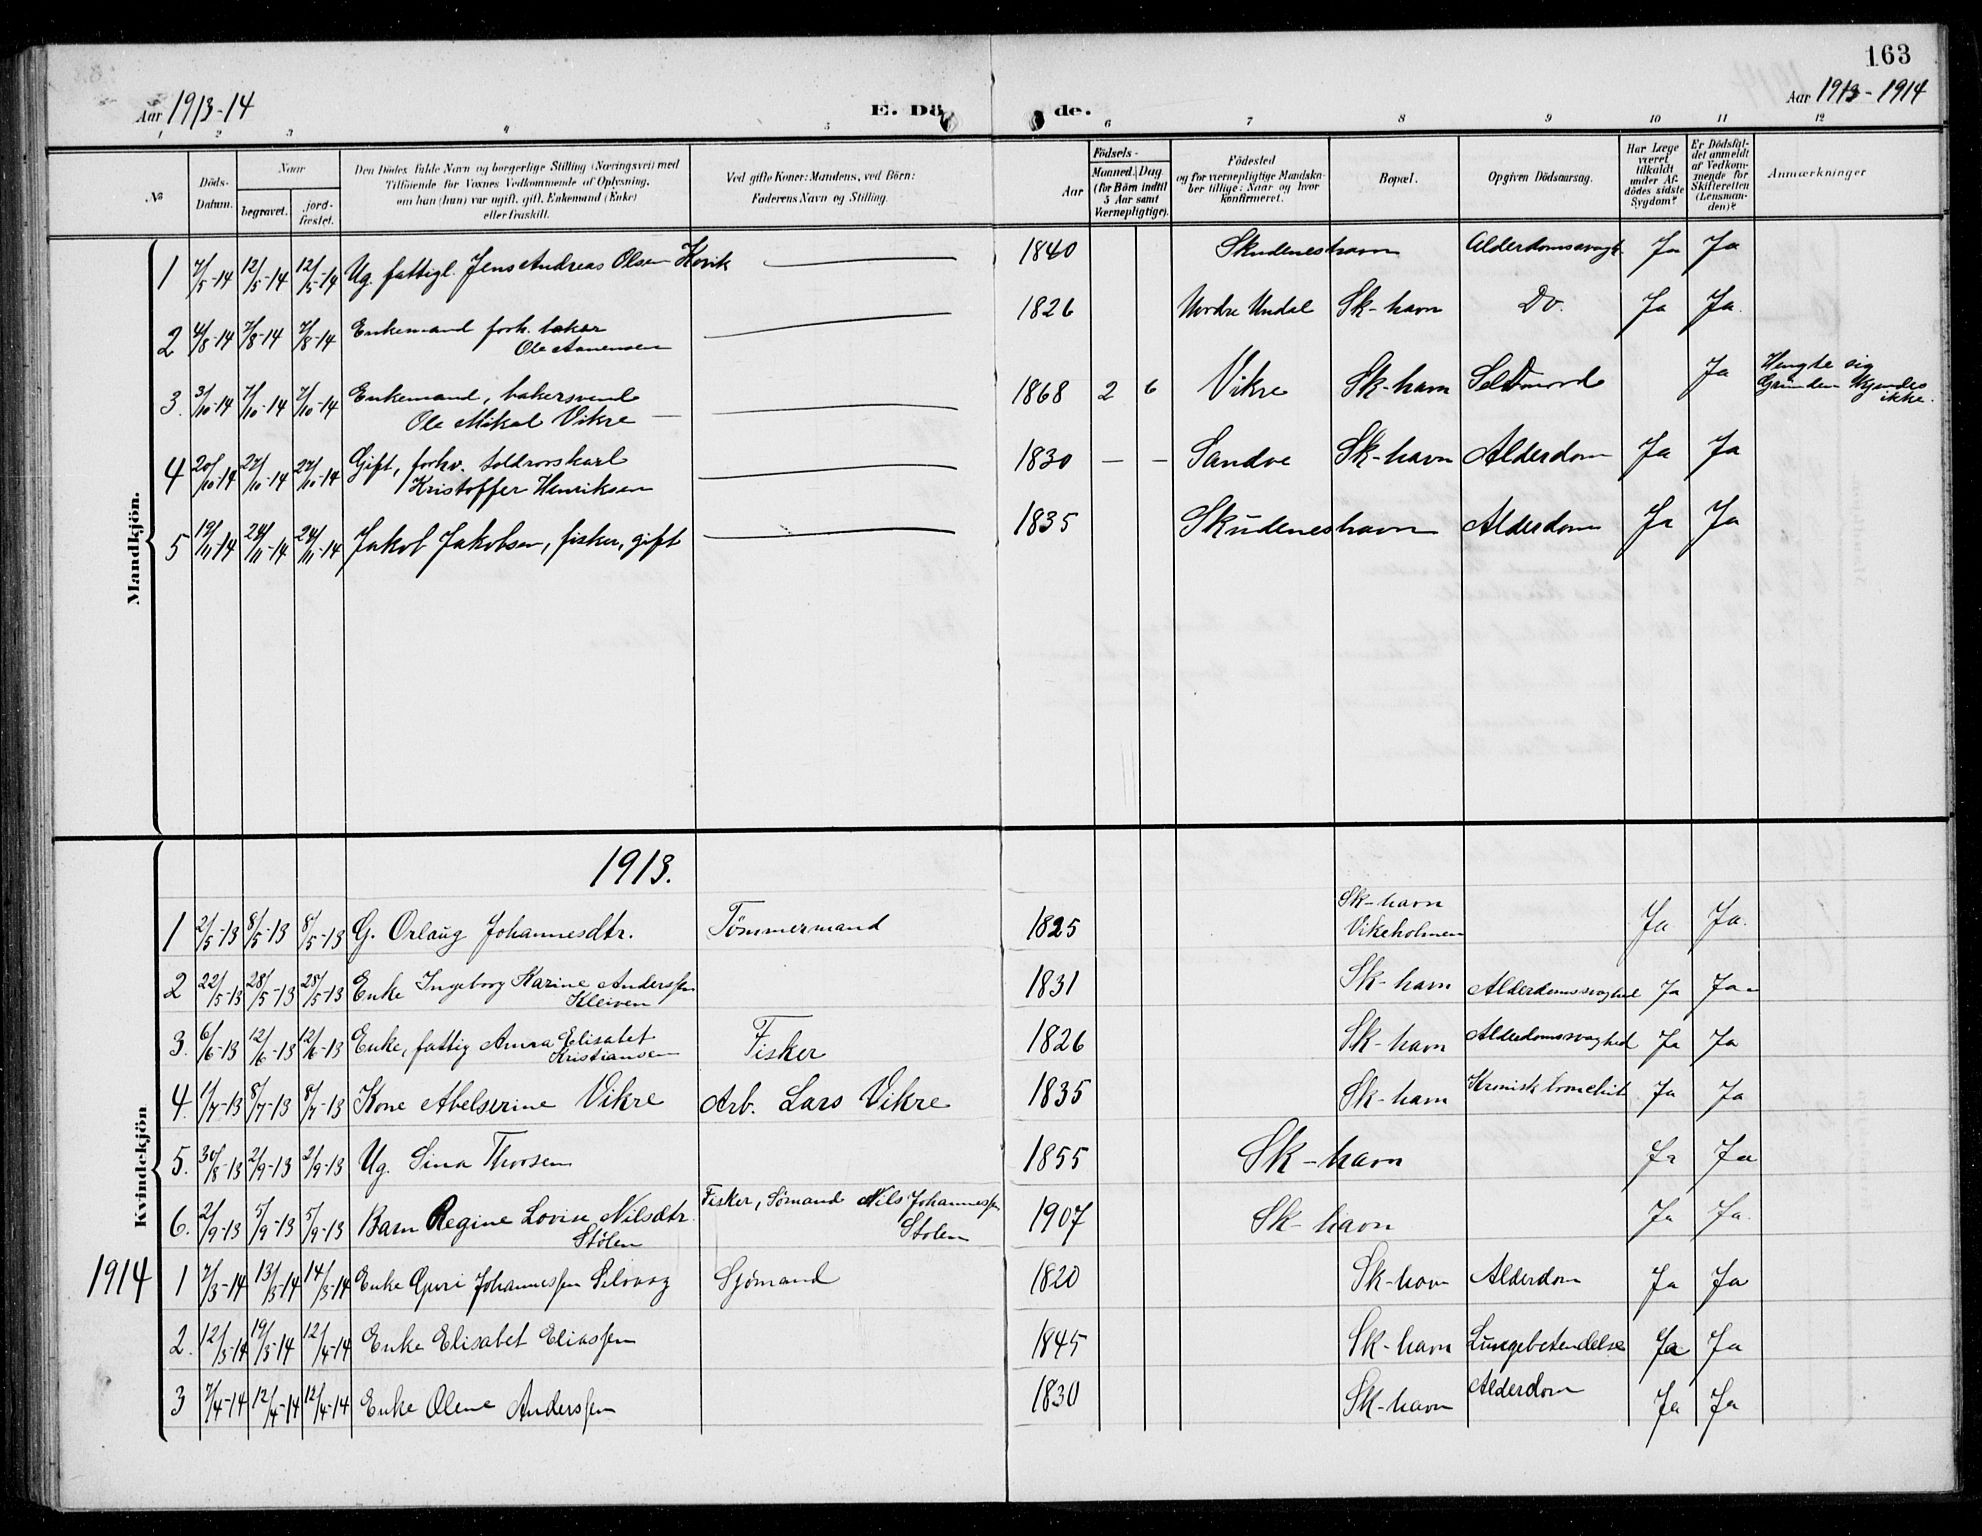 163
Aar 1913-14
E. Dö de.
Aar 1913-1914
1 2 3 4 5 6 7 8 9 10 11 12
№
Döds-Datum.
Naar
begravet.
jord-fæstet.
Den Dödes fulde Navn og borgerlige Stilling (Næringsvei) med
Tilföiende for Voxnes Vedkommende af Oplysning,
om han (hun) var ugift, gift, Enkemand (Enke)
eller fraskilt.
Ved gifte Koner: Mandens, ved Börn:
Faderens Navn og Stilling.
Födsels-
Aar
Maaned. Dag.
(for Börn indtil
5 Aar samt
Værnepligtige).
Födested
og for værnepligtige Mandska-
ber tillige: Naar og hvor
konfirmeret.
Bopæl.
Opgiven Dödsaarsag.
Har Læge
været
tilkaldt
under Af-
dödes sidste
Sygdom?
Er Dödsfal-
det anmeldt
af Vedkom-
mende for
Skifteretten
(Lensman-
den)?
Anmærkninger
Mandkjön.
1 7/5-14 12/5-14 12/5-14 Ug. fattigl. Jens Andreas Olsen Kvik — 1840 Skudeneshavn Alderdomssvagh. Ja Ja
2 4/8-14 7/8-14 7/8-14 Enkemand forh. baker — 1826 Nordre Undal Sk-havn Do. Ja Ja.
Ole Aanensen
3. 3/10-14 7/10-14 7/10-14 Enkemand, bakersvend — 1868 2 6 Vikre Sk-havn Selvmord Ja Hengte sig
Ole Mikal Vikre — Grunden kjendes
ikke.
4 20/10-14 27/10-14 27/10-14 Gift, forhv. toldrorskarl — 1830 — — Sandve Sk-havn Alderdom Ja Ja
Kristoffer Henriksen
5 19/11-14 24/11-14 24/11-14 Jakob Jakobsen, fisker, gift — 1835 Skudeneshavn Alderdom Ja Ja
Kvindekjön
1913.
1 2/5-13 8/5-13 8/5-13 G. Orlaug Johannesdtr. Tömmermand 1825 Sk-havn Vikeholmen Ja Ja.
2 22/5-13 28/5-13 28/5-13 Enke Ingeborg Karine Anderssen 1831 Sk-havn Alderdomssvaghed Ja Ja
Kleiven
3. 6/6-13 12/6-13 12/6-13 Enke, fattig Anna Elisabet Fisker 1826 Sk-havn Alderdomssvaghed Ja Ja
Kristiansen
4. 1/7-13 8/7-13 8/7-13 Kone Abelserine Vikre Arb. Lars Vikre 1835 Sk-havn Kronisk bronchit Ja Ja
5. 30/8-13 2/9-13 2/9-13 Ug. Sina Thorsen 1855 Sk-havn Ja Ja
6. 2/9-13 5/9-13 5/9-13 Barn Regine Lovise Nilsdtr. Fisker, Sömand Nils Johannessen 1907 Sk-havn Ja Ja.
Stölen Stolen
1914 1 7/3-14 13/3-14 14/3-14 Enke Guri Johannessen Selvaag Sjömand 1820 Sk-havn Alderdom Ja Ja
2. 12/3-14 19/3-14 12/4-14 Enke Elisabet Eliassen 1845 Sk-havn Lungebetendelse Ja Ja
3 7/4-14 12/4-14 12/4-14 Enke Olene Anderssen 1830 Sk-havn Alderdom Ja Ja